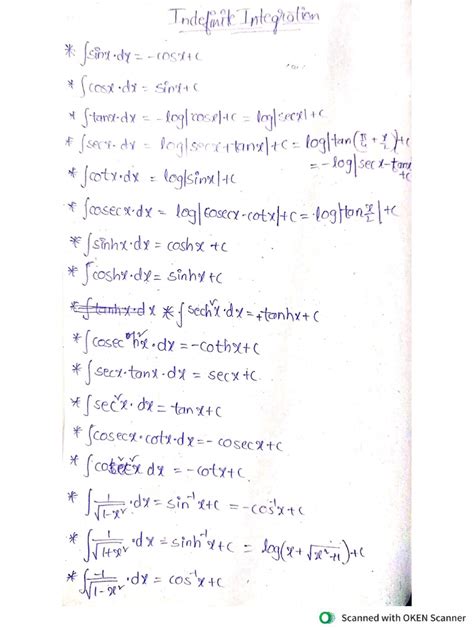 Indefinite Integration
* ∫sinx·dx = -cosx+c
* ∫cosx·dx = sinx+c
* ∫tanx·dx = -log|cosx|+c = log|secx|+c
* ∫secx·dx = log|secx+tanx|+c = log|tan(π/4 + x/2)|+c
= -log|secx-tanx|+c
* ∫cotx·dx = log|sinx|+c
* ∫cosecx·dx = log|cosecx-cotx|+c = log|tan x/2|+c
* ∫sinhx·dx = coshx+c
* ∫coshx·dx = sinhx+c
* ∫tanhx·dx * ∫sech²x·dx = +tanhx+c
* ∫cosech²x·dx = -cothx+c
* ∫secx·tanx·dx = secx+c
* ∫sec²x·dx = tanx+c
* ∫cosecx·cotx·dx = -cosecx+c
* ∫cosec²x dx = -cotx+c
* ∫1/√(1-x²)·dx = sin⁻¹x+c = -cos⁻¹x+c
* ∫1/√(1+x²)·dx = sinh⁻¹x+c = log(x+√(x²+1))+c
* ∫-1/√(1-x²)·dx = cos⁻¹x+c
Scanned with OKEN Scanner